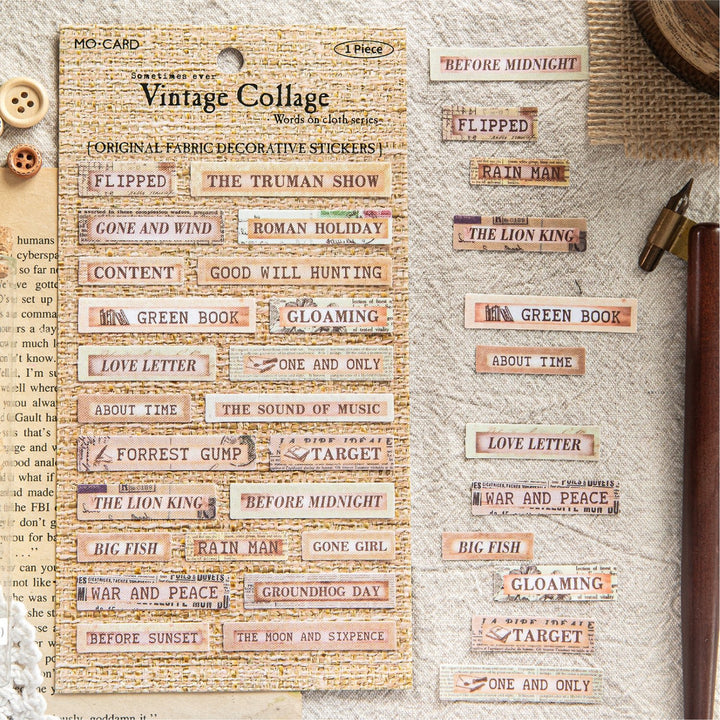 MO·CARD
1 Piece
Sometimes ever
Vintage Collage
Words on cloth series
[ORIGINAL FABRIC DECORATIVE STICKERS]
FLIPPED
THE TRUMAN SHOW
GONE AND WIND
ROMAN HOLIDAY
CONTENT
GOOD WILL HUNTING
GREEN BOOK
GLOAMING
LOVE LETTER
ONE AND ONLY
ABOUT TIME
THE SOUND OF MUSIC
FORREST GUMP
TARGET
THE LION KING
BEFORE MIDNIGHT
BIG FISH
RAIN MAN
GONE GIRL
WAR AND PEACE
GROUNDHOG DAY
BEFORE SUNSET
THE MOON AND SIXPENCE
BEFORE MIDNIGHT
FLIPPED
RAIN MAN
THE LION KING
GREEN BOOK
ABOUT TIME
LOVE LETTER
WAR AND PEACE
BIG FISH
GLOAMING
TARGET
ONE AND ONLY
humans
so far
set up
didn't know.
I'm
Gault
what if
the FBI
can you
not like
she